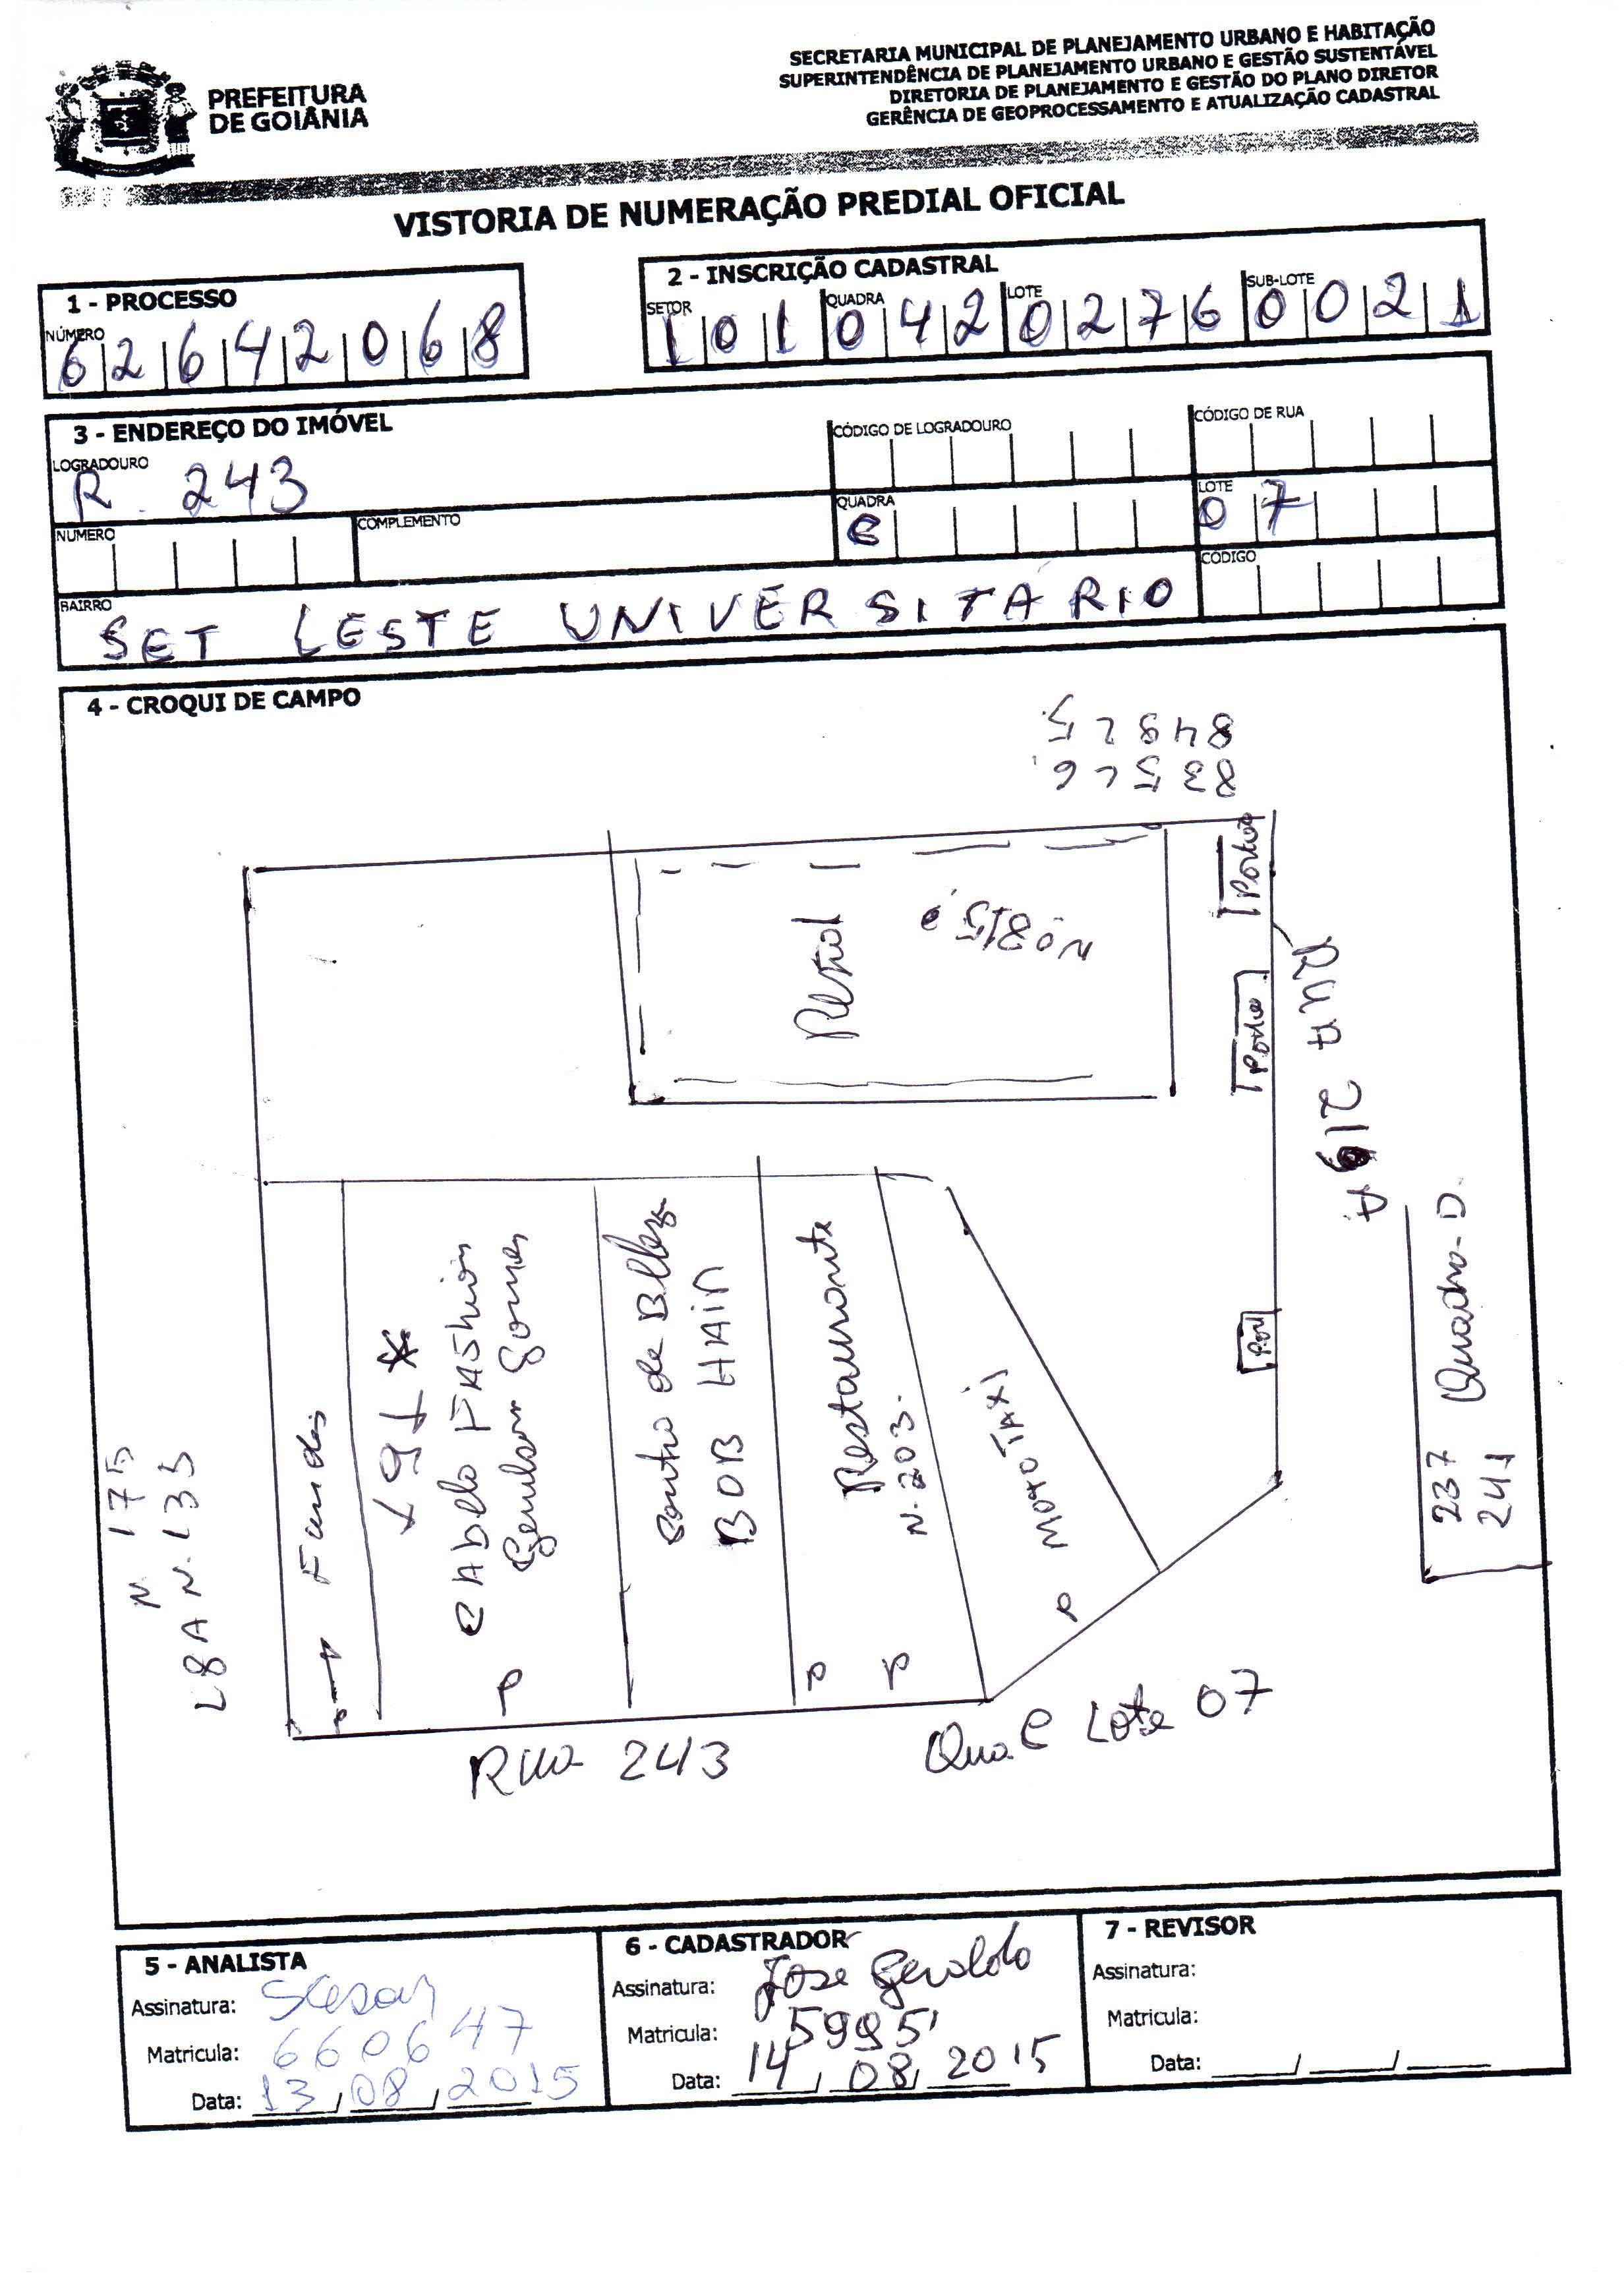 PREFEITURA
DE GOIÂNIA
SECRETARIA MUNICIPAL DE PLANEJAMENTO URBANO E HABITAÇÃO
SUPERINTENDÊNCIA DE PLANEJAMENTO URBANO E GESTÃO SUSTENTÁVEL
DIRETORIA DE PLANEJAMENTO E GESTÃO DO PLANO DIRETOR
GERÊNCIA DE GEOPROCESSAMENTO E ATUALIZAÇÃO CADASTRAL
VISTORIA DE NUMERAÇÃO PREDIAL OFICIAL
1 - PROCESSO
NÚMERO
6 2 6 4 2 0 6 8
2 - INSCRIÇÃO CADASTRAL
SETOR QUADRA LOTE SUB-LOTE
1 0 1 0 4 2 0 2 7 6 0 0 2 1
3 - ENDEREÇO DO IMÓVEL
LOGRADOURO CÓDIGO DE LOGRADOURO CÓDIGO DE RUA
R. 243
NÚMERO COMPLEMENTO QUADRA LOTE
C 0 7
BAIRRO CÓDIGO
SET LESTE UNIVERSITÁRIO
4 - CROQUI DE CAMPO
Nº 815
Portão
Portão
RUA 219 A
Quadra-D.
237
241
N. 175
Fundos
191 *
CABELO FASHION
Gomes
BOB HAIR
Restaurante
N. 203.
MOTO TAXI
P
P
P
P
Rua 243
Qua. C Lote 07
5 - ANALISTA
Assinatura:
Matricula: 660647
Data: 13/08/2015
6 - CADASTRADOR
Assinatura: Jose Geraldo
Matricula: 5995
Data: 14/08/2015
7 - REVISOR
Assinatura:
Matricula:
Data: / /